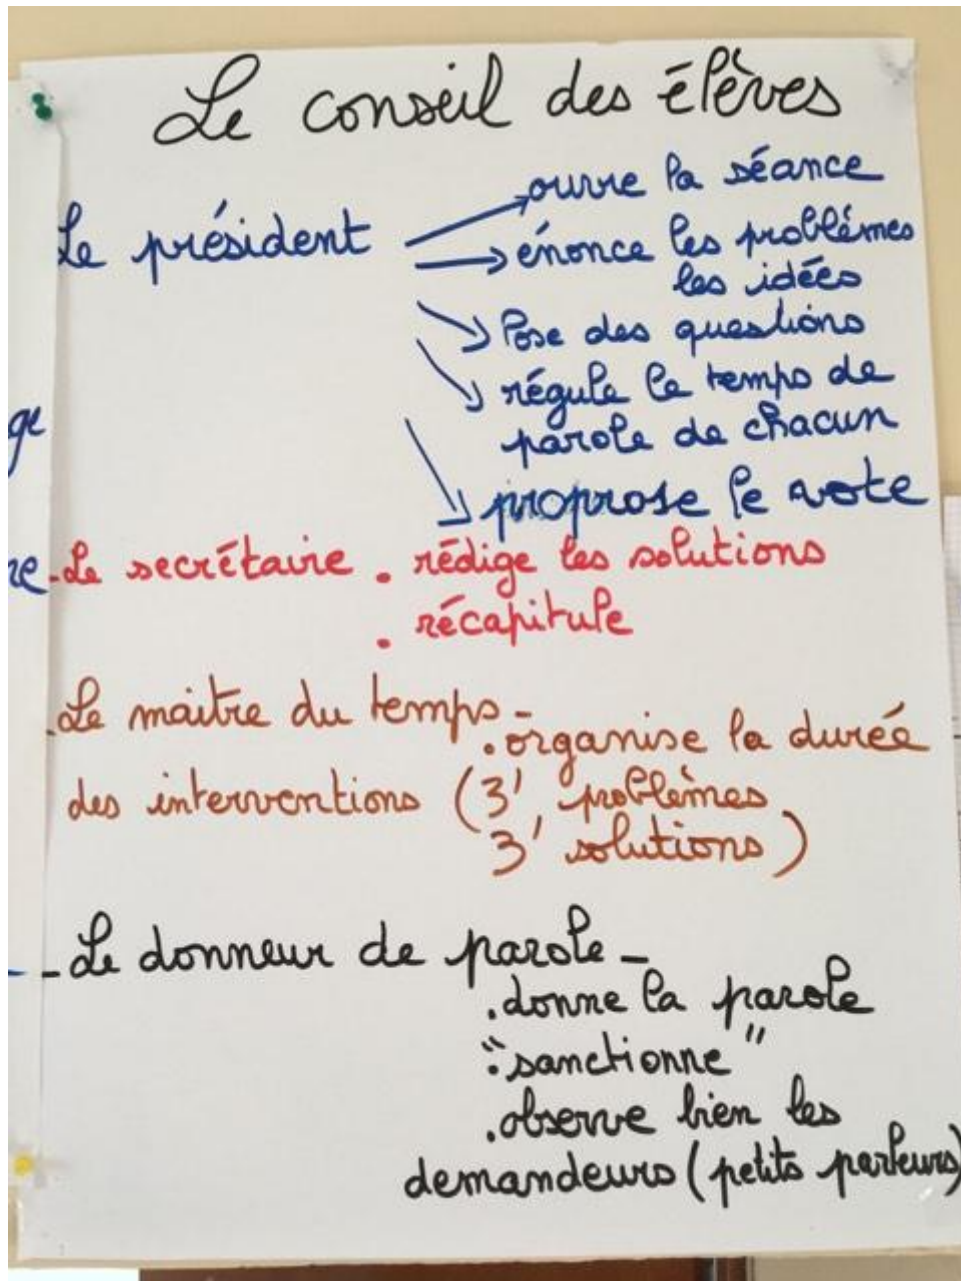 Le conseil des élèves
Le président
ouvre la séance
énonce les problèmes
les idées
Pose des questions
régule le temps de
parole de chacun
propose le vote
ge
re
-Le secrétaire . rédige les solutions
. récapitule
.Le maitre du temps -
. organise la durée
des interventions (3' problèmes
3' solutions)
- Le donneur de parole -
. donne la parole
. "sanctionne"
. observe bien les
demandeurs (petits parleurs)